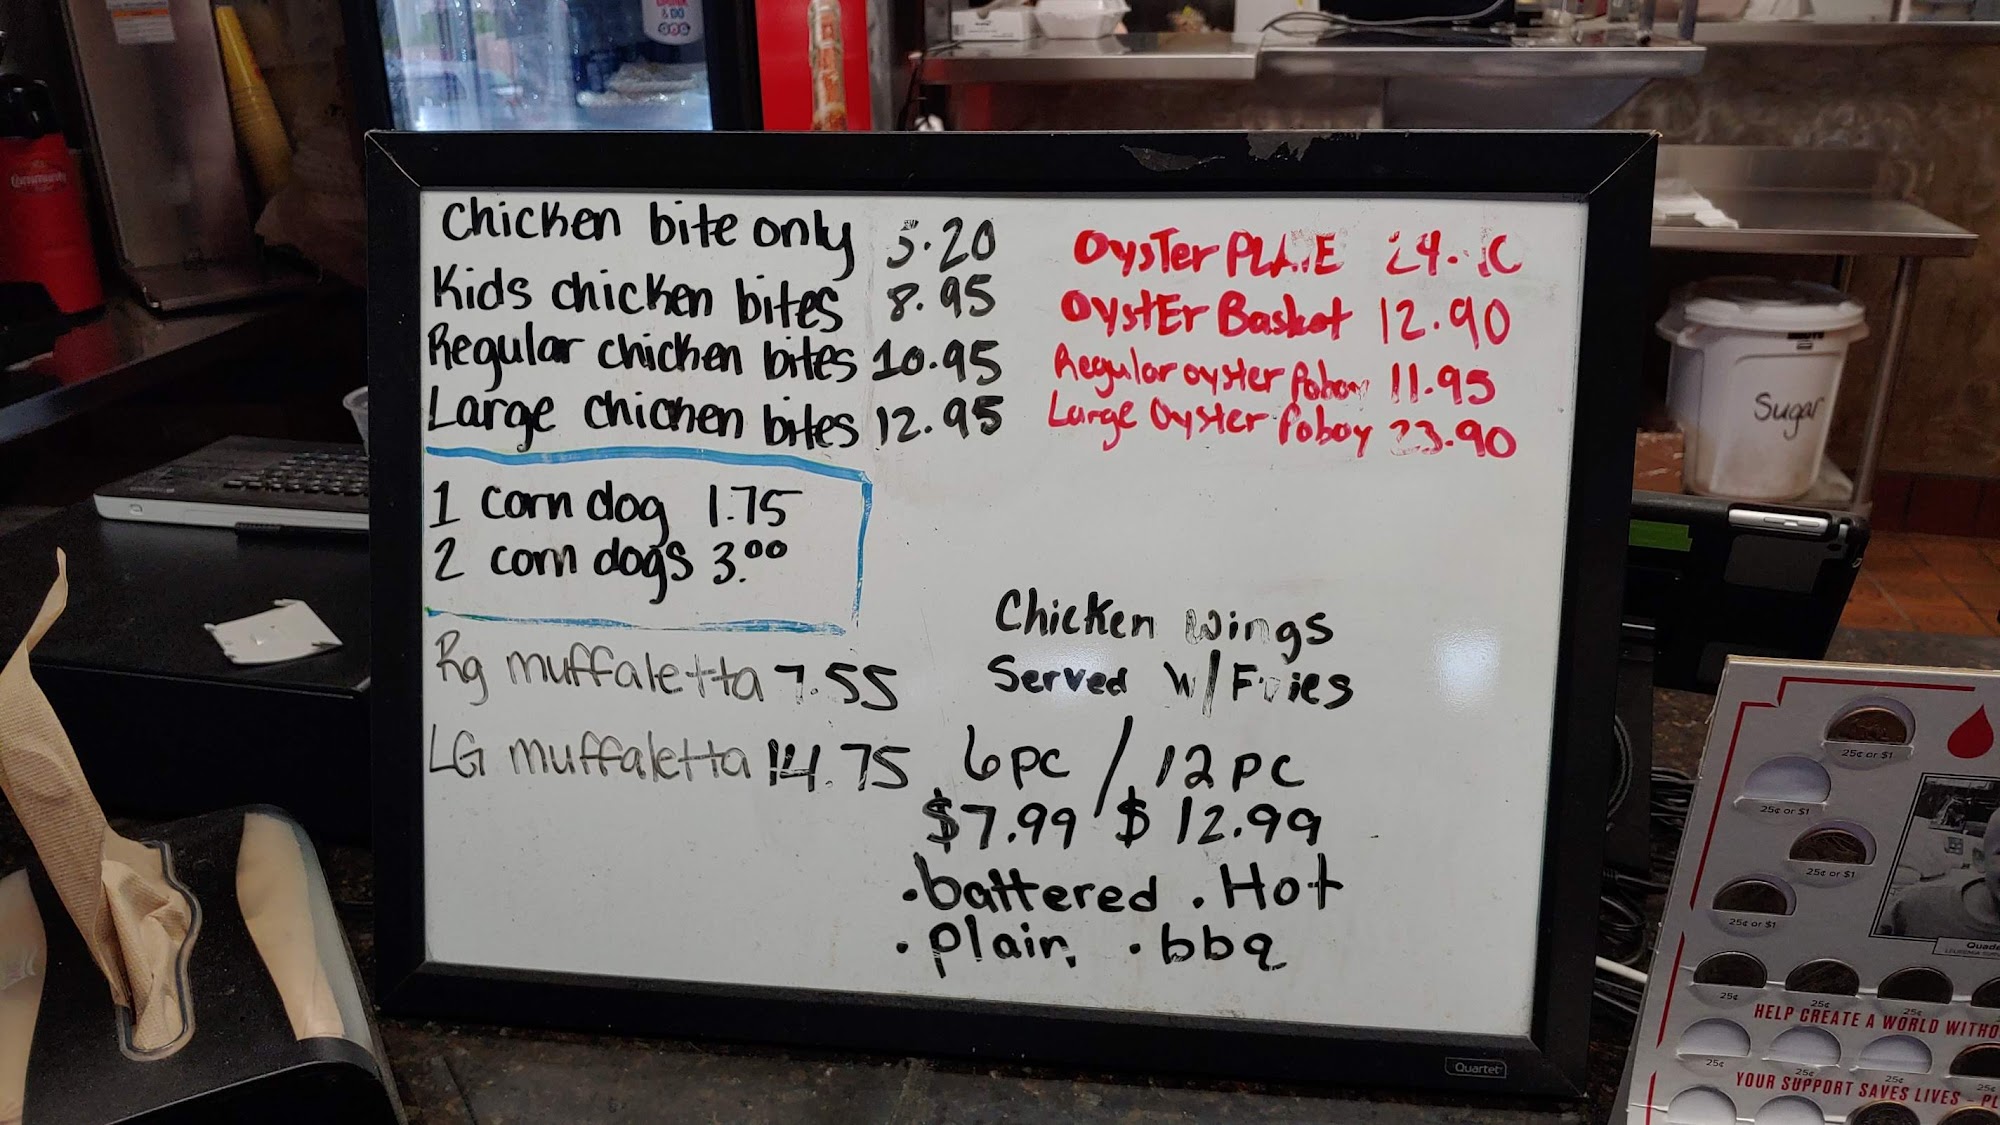 Chicken bite only 5.20
Kids chicken bites 8.95
Regular chicken bites 10.95
Large chicken bites 12.95
1 corn dog 1.75
2 corn dogs 3.00
Rg muffaletta 7.55
LG muffaletta 14.75
Oyster PLATE 24.
OystEr Basket 12.90
Regular oyster Poboy 11.95
Large Oyster Poboy 23.90
Chicken wings
Served w/ Fries
6pc / 12pc
$7.99 $12.99
• battered • Hot
• plain • bbq
Quartet
Sugar
Community
25¢ or $1
25¢ or $1
25¢ or $1
25¢ or $1
25¢ 25¢ 25¢
HELP CREATE A WORLD WITHO
25¢ 25¢ 25¢ 25¢
YOUR SUPPORT SAVES LIVES - PL